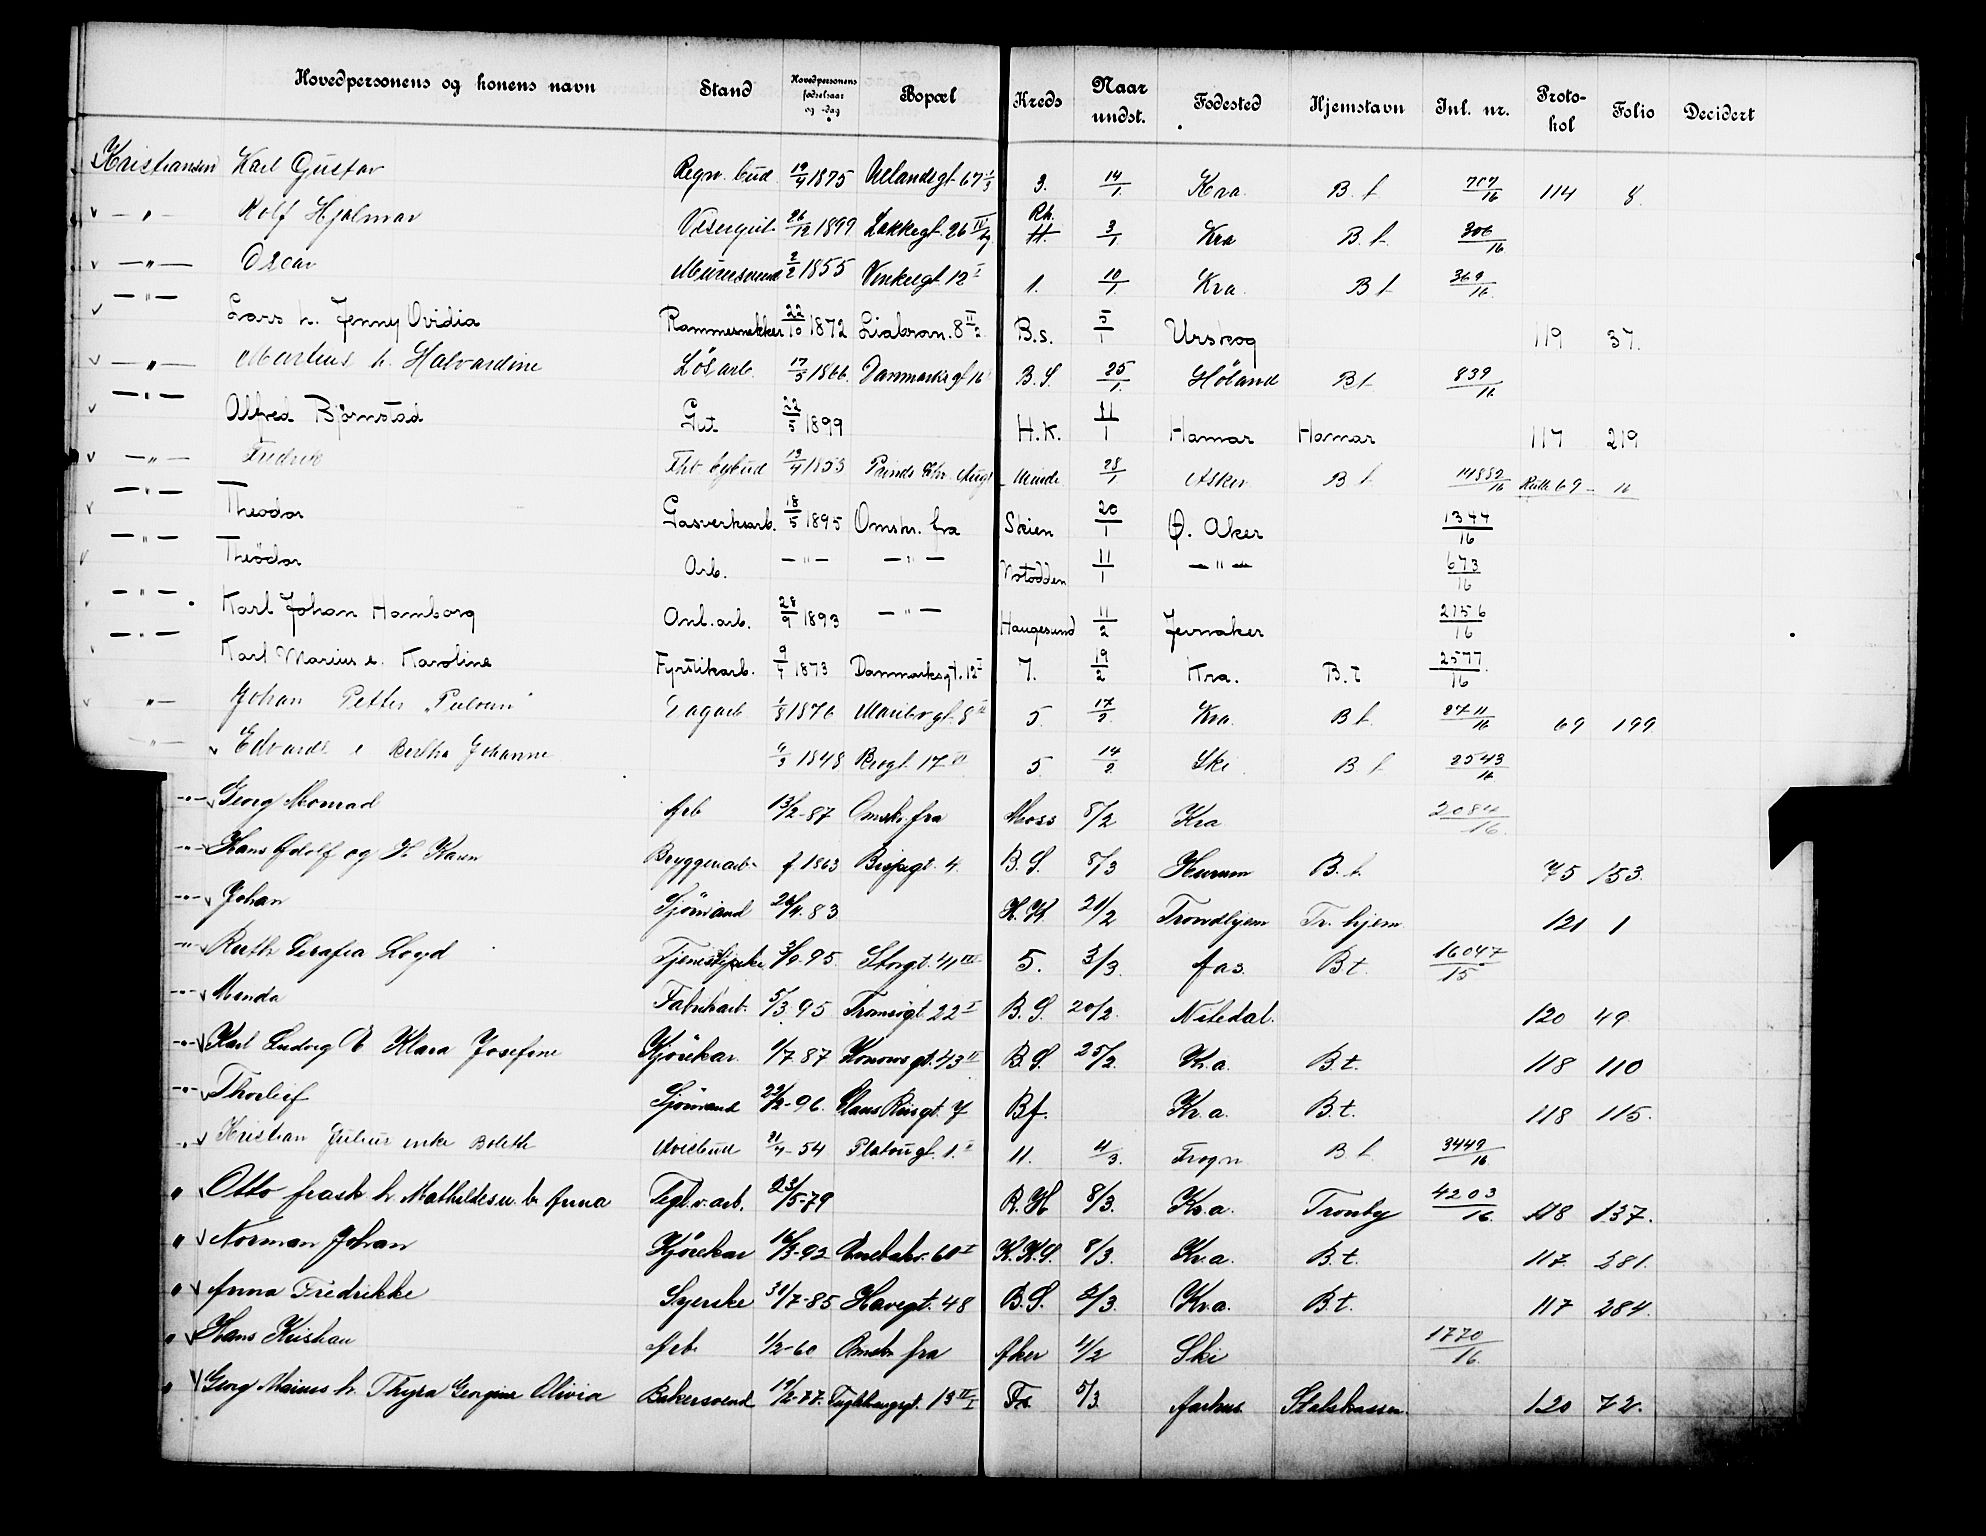 Hovedpersonens og konens navn Stand Hovedpersonens fødselsaar og -dag Bopæl Kreds Naar undst. Fødested Hjemstavn Inl. nr. Protokol Folio Decidert
Kristiansen Karl Gustav Regn. bud 19/4 1875 Uelandsgt 67 1/3 3. 14/1 Kra. B. t. 707/16 114 8.
— " — Rolf Hjalmar Visergut 26/12 1899 Lakkegt. 26 Rh. H. 3/1 Kra B. t. 306/16
— " — Oscar Murersvend 2/2 1855 Vinkelgt 12 I 1. 10/1 Kra. B t 369/16
— " — Lars h. Jenny Ovidia Rammesnekker 22/10 1872 Liabran. 8 II 2 B.s. 5/1 Urskog 119 37.
— " — Martius h. Halvardine Løsarb. 17/5 1866 Danmarks gt 16 B. S. 25/1. Høland B t 839/16
— " — Alfred Bjørnstad Gut 22/5 1899 H.K. 11/1 Hamar Hamar 117 219
— " — Fredrik bybud 13/4 1853 Prinds Chr. Augt Minde 28/1 Asker B t 14882/16 Ruth 69 — 16
— " — Theodor Gasverksarb. 18/5 1895 Omskr. fra Skien 20/1 Ø. Aker 1344/16
— " — Theodor Arb. — " — — " — Notodden 11/1 — " — 673/16
— " — Karl Johan Hamborg Anl. arb. 28/9 1893 — " — Haugesund 11/2 Jevnaker 2156/16
— " — Karl Marius e. Karoline Fyrstikarb. 9/7 1873 Danmarksgt. 12 I 7. 19/2 Kra. B.t 2577/16
— " — Johan Petter Dagarb 1/8 1876 Maribogt 8 II 5. 17/2. Kra. B t 2711/16 69 199
— " — Edvard e Bertha Johanne 6/3 1848 Brogt. 17 II 5. 14/2 Ski B t 2543/16
— " — Georg Monrad Arb 13/2-87 Omskr. fra Moss 8/2 Kra 2084/16.
— " — Hans Adolf og H Karen Bryggeriarb. f. 1863 Bispegt. 4. B. S. 8/3 Hurum B. t. 75 153.
— " — Johan Sjömand 26/4. 83 H. K 21/2 Trondhjem Tr. hjem 121 1
— " — Ruth Serafia Lloyd Tjenestepike 3/9. 95. Storgt. 41 III 5. 3/3. Aas. B t. 16047/15
— " — Manda Fabrikarb. 5/3. 95 Tromsøgt 22 I B. S. 20/2. Nitedal. 120 49
— " — Karl Ludvig E Klara Josefine Kjörekar 1/7 87 Konowsgt. 43 II B. S. 25/2. Kr.a. B.t. 118 110
— " — Thorleif Sjömand 22/2-96. Klaus Riisgt. 7 Bf. Kr.a. B.t. 118 115.
" Kristian Julius enke Boleth Avisbud 21/4-54 Platou gt. 1. II 11. 4/3. Frogn B t. 3449/16
" Otto Frash h. Mathilde Anna Tegl.v.arb. 23/5-79 R.H 8/3. Kr.a. Tronby 4203/16. 118 137.
" Norman Johan Kjörekar 16/3-92 60 I K.K.S. 8/3. Kr.a. B.t. 117. 281.
" Anna Fredrikke Syerske 30/7-85 Havegt. 48 B.S. 2/3. Kr.a. B.t. 117 284.
" Hans Kristian Arb 1/2-60 Omskr. fra Aker 4/2 Ski 1770/16.
" Georg Marius h. Thyra Georgine Olivia Bakersvend 19/2-77. Fuglehaugsgt. 13 II I Fr. 5/3 Aarhus Statskassen. 120 72.